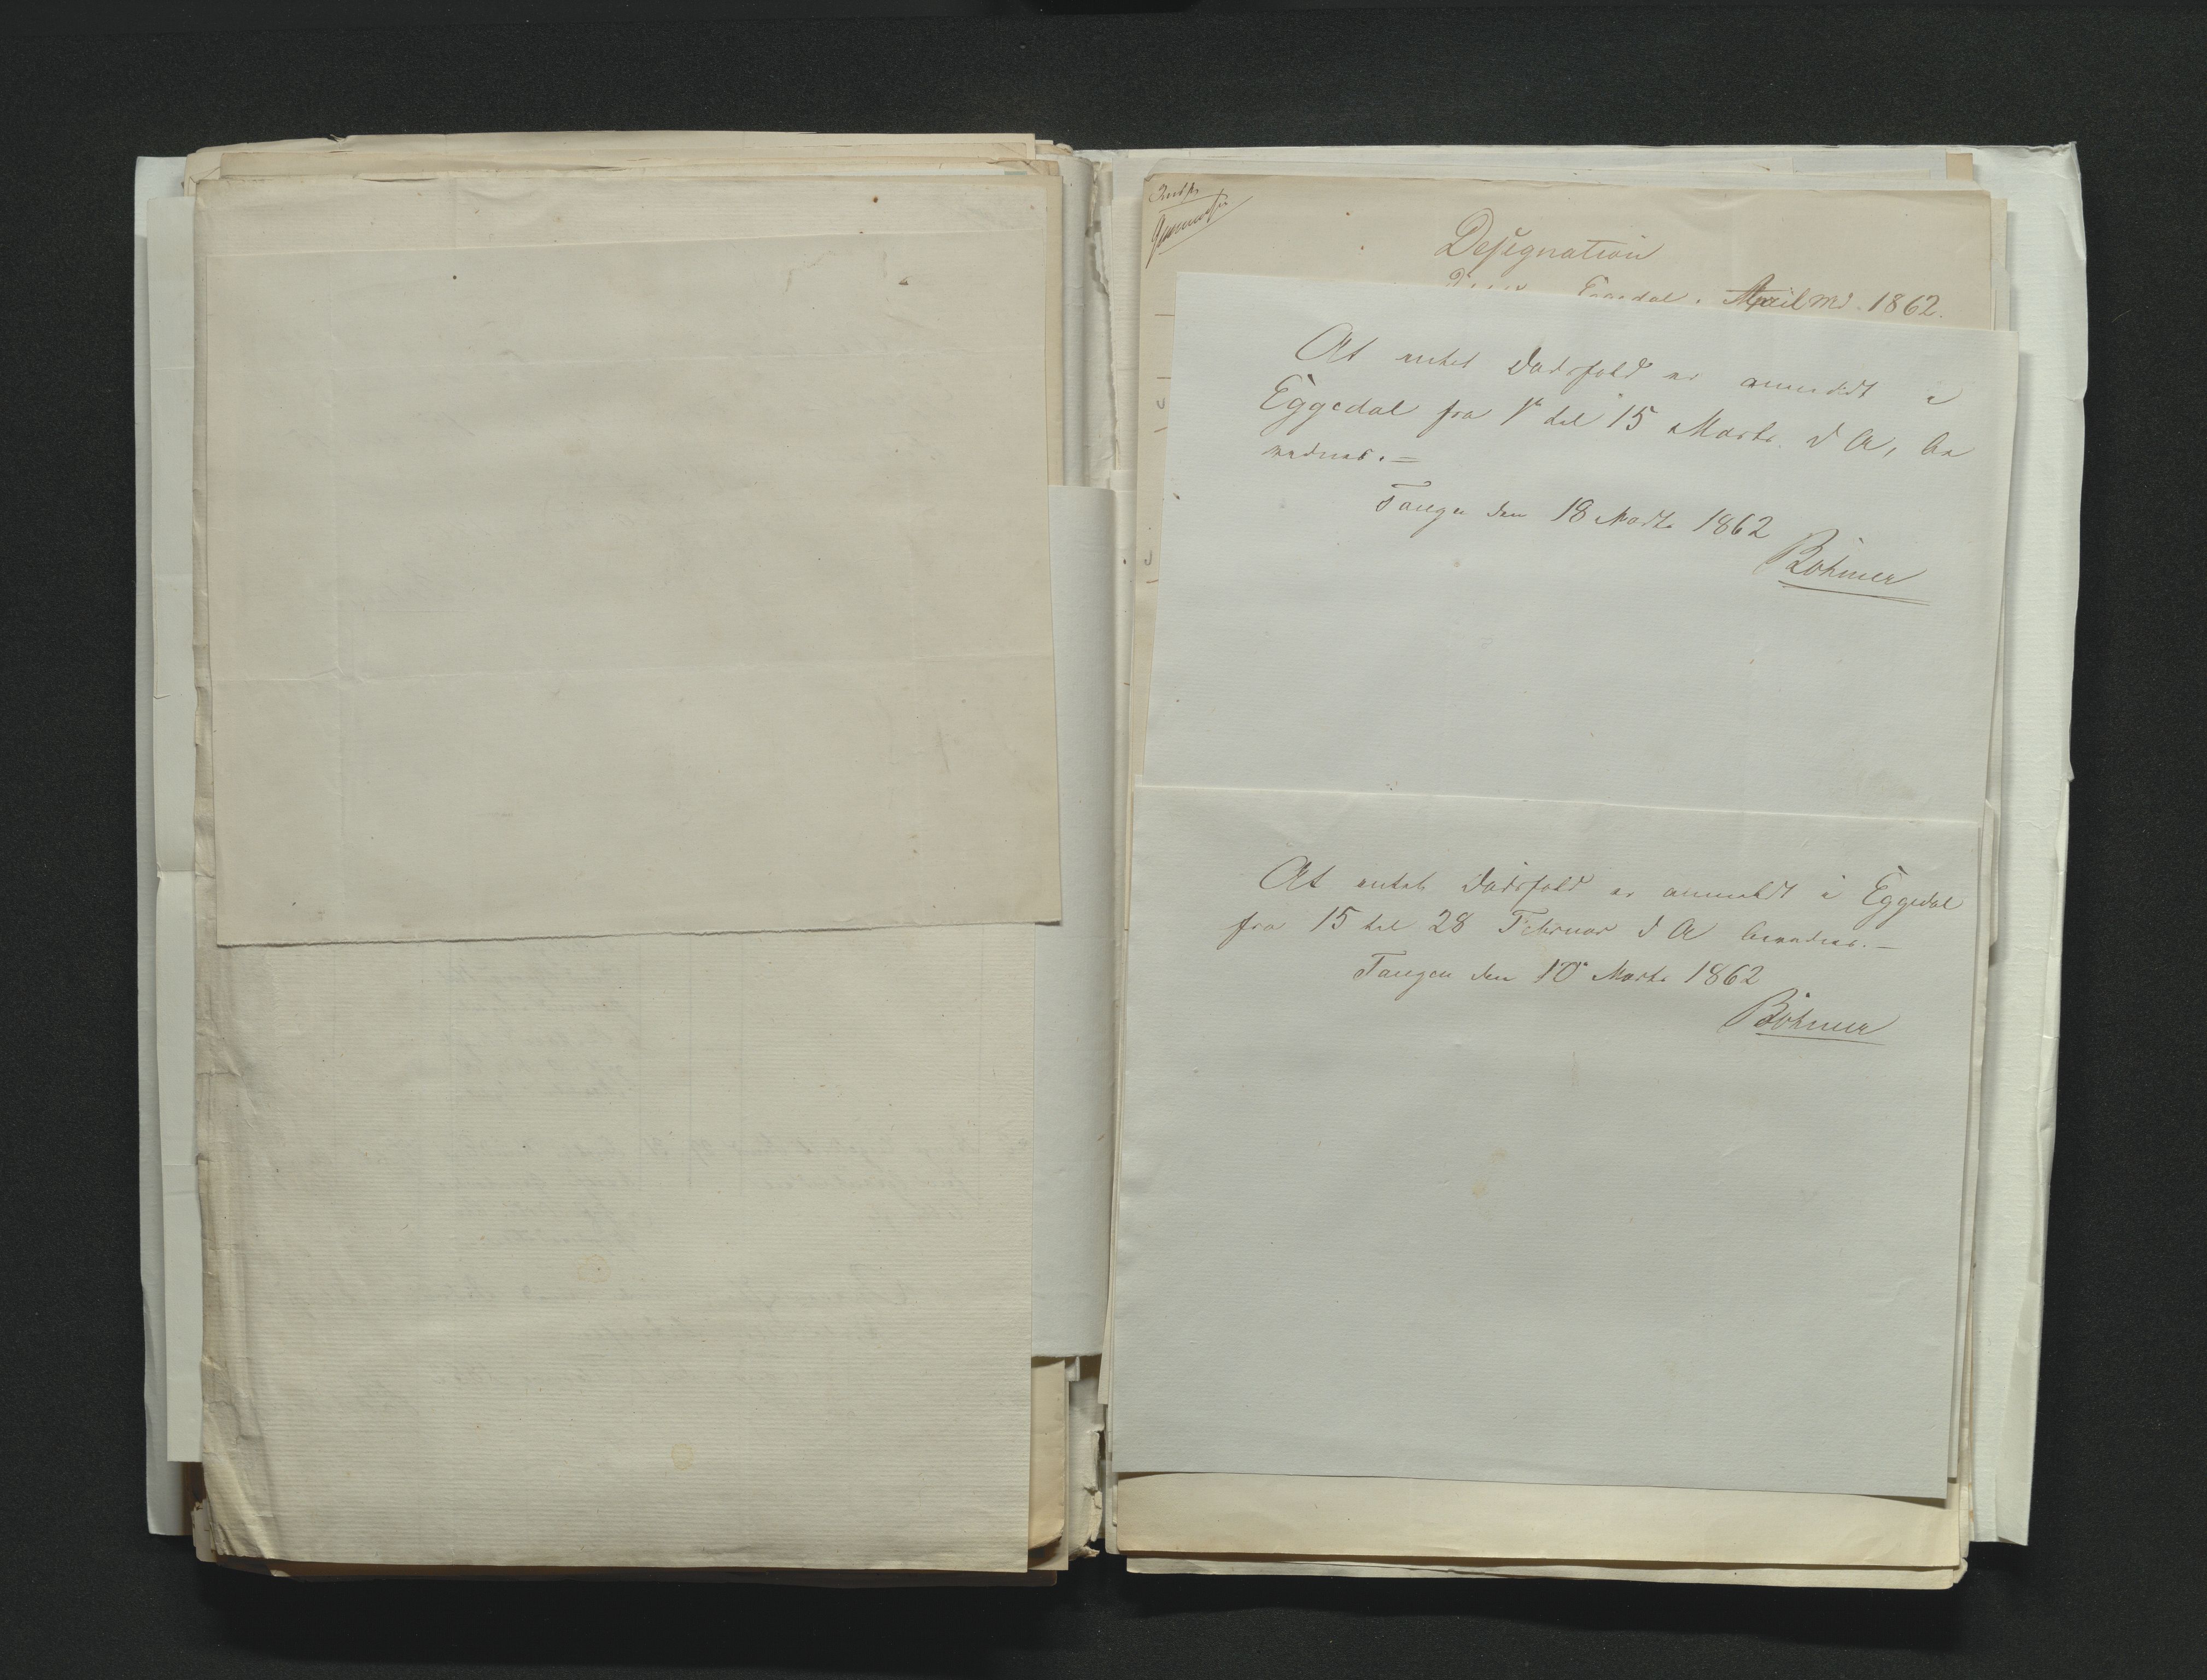 Designation
Eggedal i April Md. 1862.
At intet Dødsfald er anmeldt i
Eggedal fra 1ste til 15 Marts d A, be
vidnes.=
Tangen den 18 Marts 1862
Böhmer
At intet Dødsfald er anmeldt i Eggedal
fra 15 til 28 Februar d A bevidnes.-
Tangen den 10 Marts 1862
Böhmer